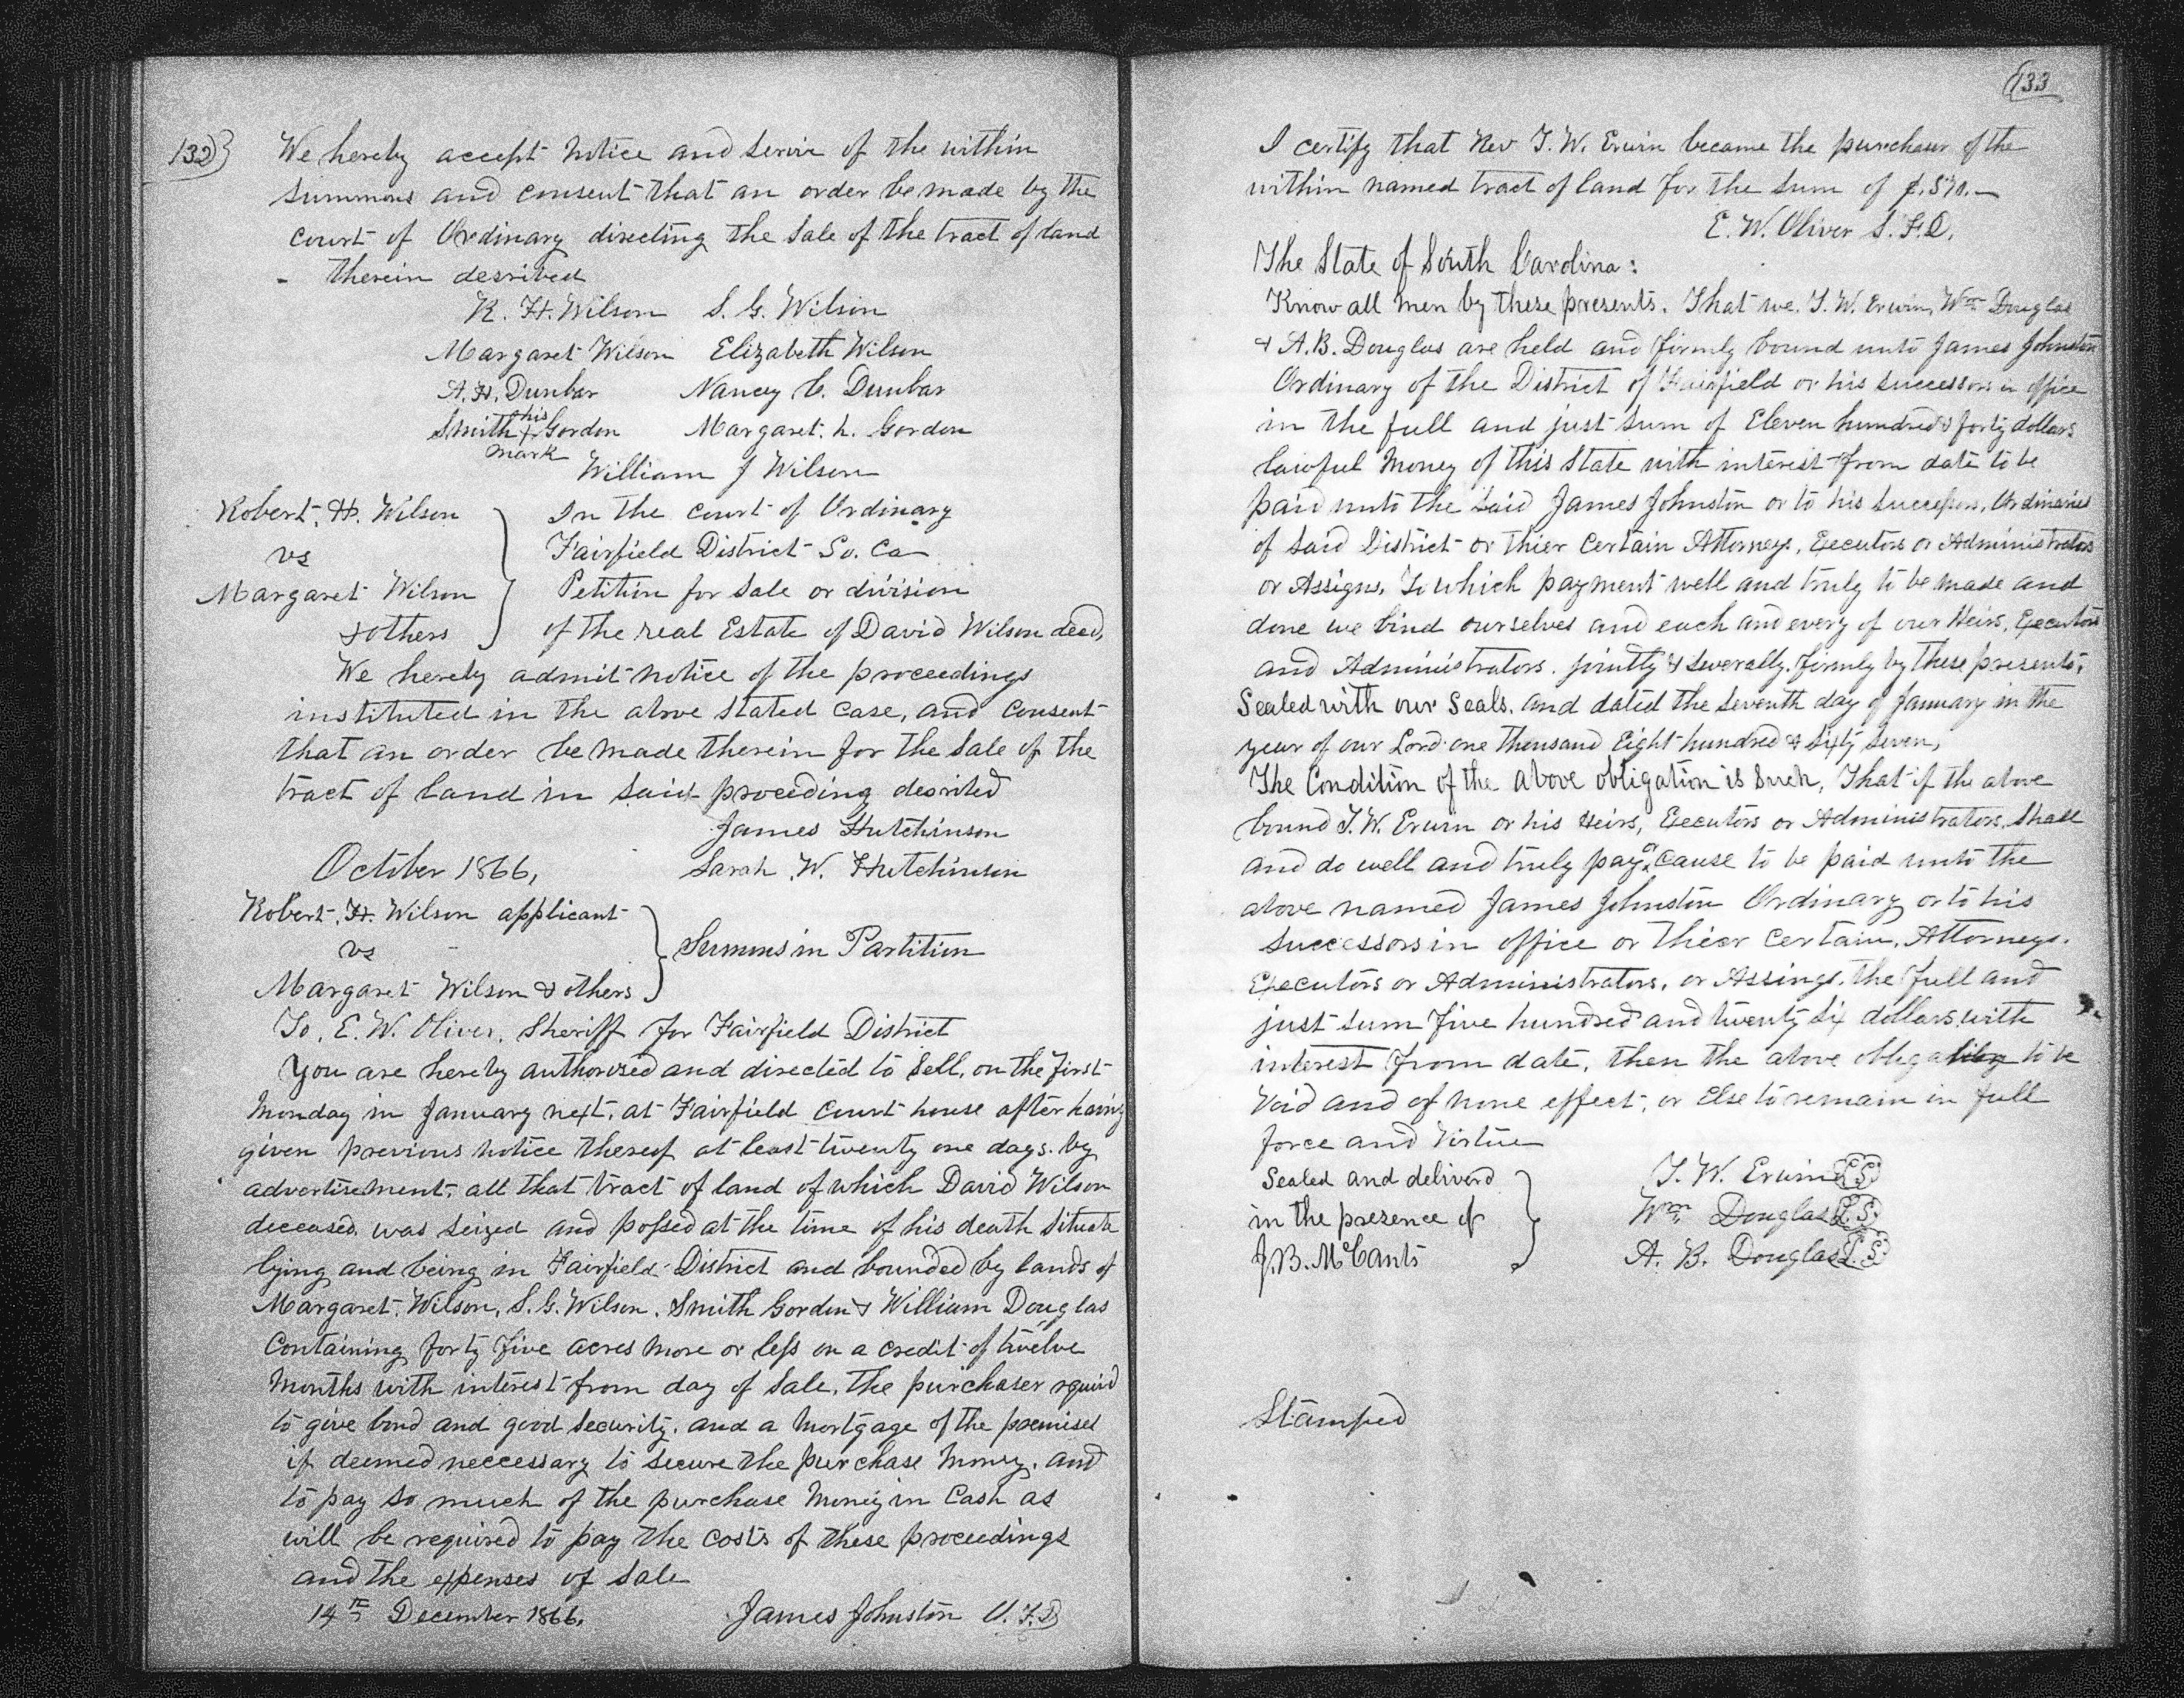 132
We hereby accept notice and servic of the within
summons and consent that an order be made by the
Court of Ordinary directing the Sale of the tract of land
- therein desribed
R. H. Wilson S. G. Wilson
Margaret Wilson Elizabeth Wilson
A. H. Dunbar Nancy C. Dunbar
Smith his + mark Gordon Margaret. L. Gordon
William J Wilson
Robert. H. Wilson
vs
Margaret Wilson
& others
In the Court of Ordinary
Fairfield District So. Ca
Petition for Sale or division
of the real Estate of David Wilson decd,
We hereby admit notice of the proceedings
instituted in the above stated Case, and Consent
that an order be made therein for the Sale of the
tract of land in said proceeding desribed
James Hutchinson
October 1866, Sarah W. Hutchinson
Robert. H. Wilson applicant
vs
Margaret Wilson & others
Summs in Partition
To, E. W. Oliver, Sheriff for Fairfield District
You are hereby authorized and directed to Sell, on the first
Monday in January next, at Fairfield Court house after having
given previous notice thereof at least twenty one days. by
advertisement, all that tract of land of which David Wilson
deceased, was seized and possed at the time of his death Situate
lying and being in Fairfield District and bounded by lands of
Margaret. Wilson, S. G. Wilson, Smith Gordon & William Douglas
Containing forty five acres more or less on a credit of twelve
Months with interest from day of Sale, the purchaser rquird
to give bond and good security, and a Mortgage of the premises
if deemed neccessary to secure the purchase Money, and
to pay so much of the purchase Money in Cash as
will be required to pay the Costs of these proceedings
and the expenses of Sale
14th December 1866, James Johnston O. F. D
133
I certify that Rev T. W. Erwin became the purchaser of the
within named tract of land for the Sum of $.570.—
E. W. Oliver S. F. D.
The State of South Carolina:
Know all Men by these presents. That we, T. W. Erwin, Wm Douglas
& A. B. Douglas are held and firmly bound unto James Johnston
Ordinary of the District of Fairfield or his successors in office
in the full and just Sum of Eleven hundred & forty dollars
lawful Money of this State with interest from date to be
paid unto the said James Johnston or to his successors, Ordinaries
of said District or thier Certain Attorneys, Executors or Administrators
or Assigns. To which payment well and truly to be made and
done we bind ourselves and each and every of our Heirs, Executors
and Administrators. jointly & severally. firmly by these presents,
Sealed with our Seals, and dated the seventh day of January in the
year of our Lord one thousand Eight hundred & sixty seven,
The Condition of the above obligation is Such, That if the above
bound T. W. Erwin or his Heirs, Executors or Administrators, Shall
and do well and truly pay or cause to be paid unto the
above named James Johnston Ordinary or to his
successors in office or thier Certain, Attorneys.
Executors or Administrators, or Assings. the full and
just sum five hundred and twenty six dollars with
interest from date, then the above obligation to be
Void and of none effect, or Else to remain in full
force and Virtue
Sealed and deliverd
in the presence of
J. B. McCants
T. W. Erwin L.S.
Wm. Douglas L.S.
A. B. Douglas L.S.
Stamped